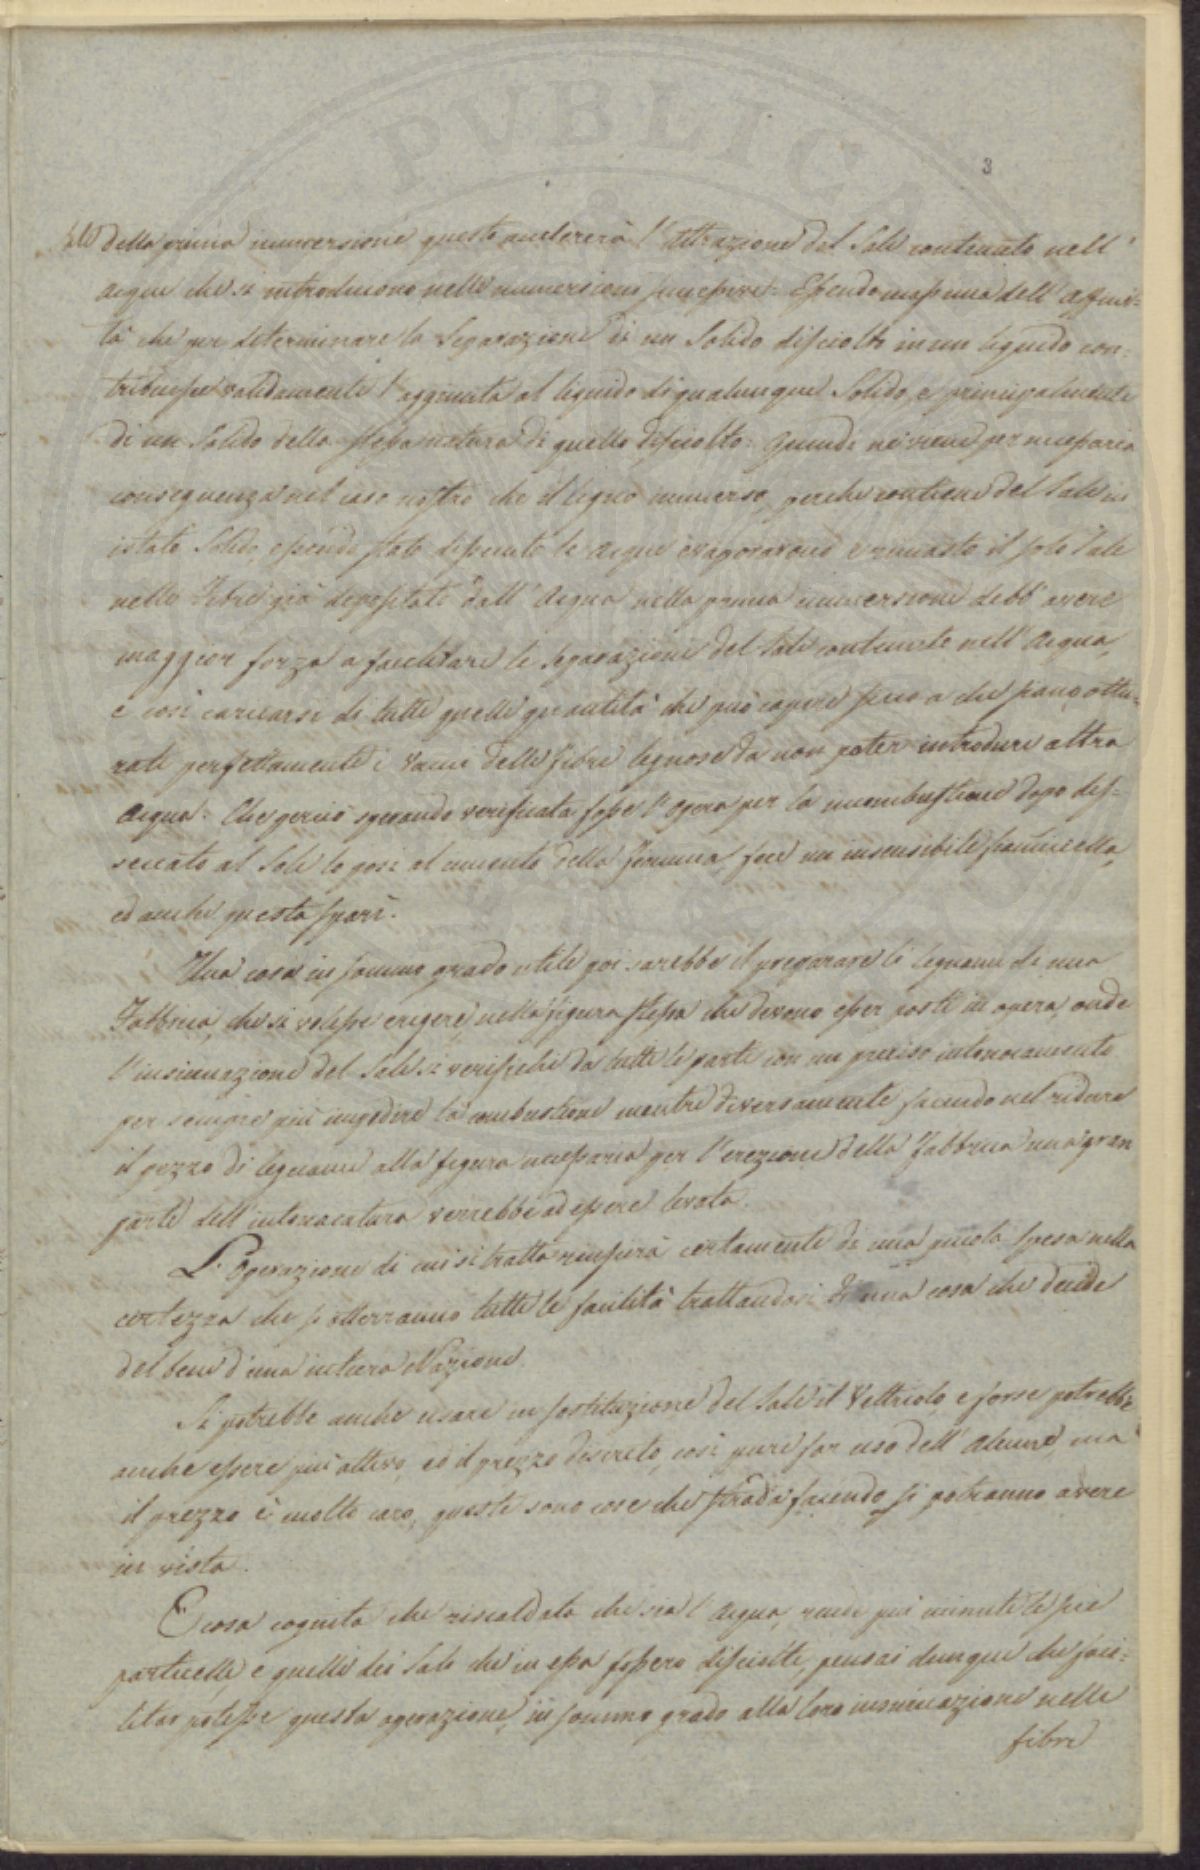 3
della prima immersione questo accelererà l'attrazione del Sale contenuto nell'
acque che si introducono nelle immersioni successive. Essendo massima dell'affini-
tà che per determinare la Separazione di un Solido disciolto in un liquido con-
tribuisse validamente l'aggiunta al liquido di qualunque Solido, e principalmente
di un Solido della stessa natura di quello disciolto. Quindi ne viene per necessaria
conseguenza nel caso nostro che il legno immerso, perche contiene del Sale in
istato Solido, essendo state disseccate le acque evaporarono e rimasto il solo Sale
nelle Fibre già depositate dall'Acqua nella prima immersione debb'avere
maggior forza a facilitare la Separazione del Sale contenuto nell'Acqua,
e così caricarsi di tutta quella quantità che può capire sino a che siano ottu-
rati perfettamente i vacui delle fibre legnose da non poter introdurre altra
acqua. Che perciò sperando verificata fosse l'opera per la incombustione dopo dis-
seccato al Sole lo posi al cimento della Fiamma, fece un insensibile fiammicella,
ed anche questa sparì.
Una cosa in sommo grado utile poi sarebbe il preparare li legnami di una
Fabbrica, che si volesse erigere, nella figura stessa che devono esser posti in opera, onde
l'insinuazione del Sale si verifichi da tutte le parti con un preciso intonacamento
per sempre più impedire la combustione mentre diversamente facendo nel ridurre
il pezzo di legname alla figura necessaria per l'erezione della Fabbrica una gran
parte dell'intonacatura verrebbe ad essere levata.
L'operazione di cui si tratta riuscirà certamente di una piccola spesa nella
certezza che si otterranno tutte le facilità trattandosi di una cosa che decide
del bene d'una intiera Nazione.
Si potrebbe anche usare in sostituzione del Sale il Vettriolo, e forse potrebbe
anche essere più attivo, ed il prezzo discreto, così pure far uso dell'Alume, ma
il prezzo è molto caro, queste sono cose che strada facendo si potranno avere
in vista.
È cosa cognita che riscaldata che sia l'Acqua, rende più minute le sue
particelle e quelle dei Sali che in essa fossero disciolte, pensai dunque che faci-
litar potesse questa operazione, in sommo grado alla loro insinuazione nelle
fibre